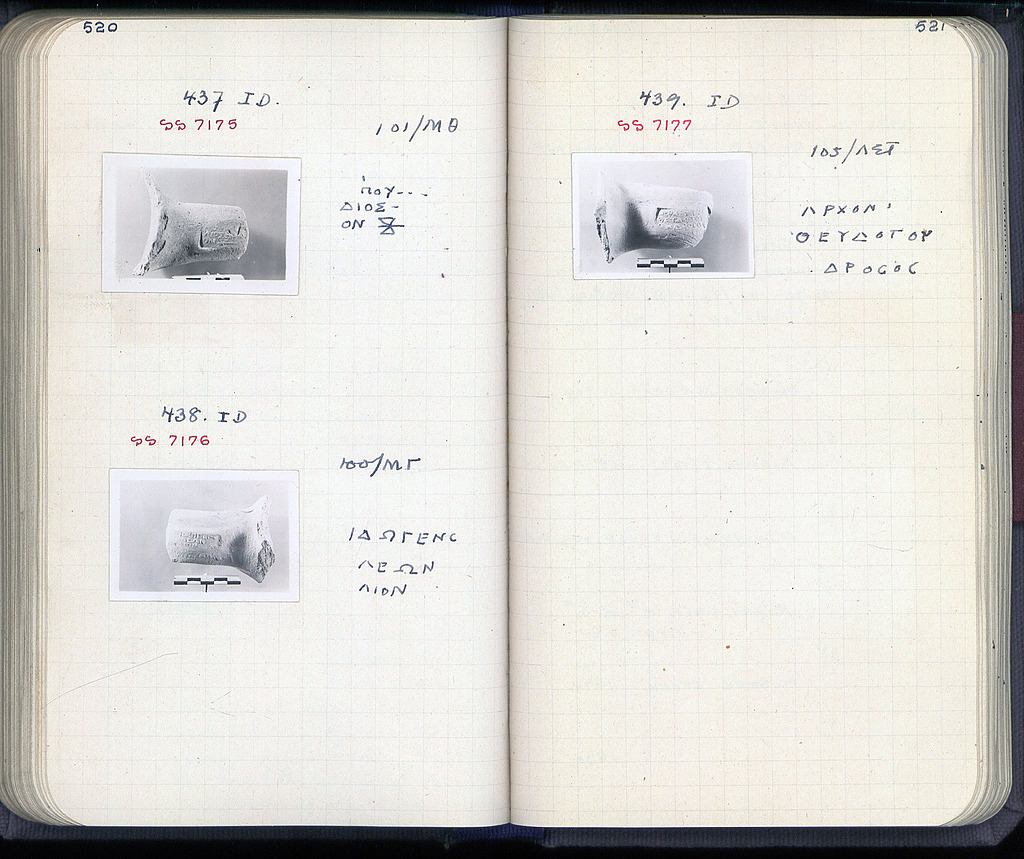 520
437 ID.
SS 7175
101/ΜΘ
ΠΟΥ---
ΔΙΟΣ-
ΟΝ
438. ID
SS 7176
100/ΜΓ
ΙΔΩΓΕΝС
ΛΕΩΝ
ΛΙΟΝ
521
439. ID
SS 7177
105/ΛΣΤ
ΑΡΧΟΝ'
ΘΕΥΔΟΤΟΥ
ΔΡΟСΟС